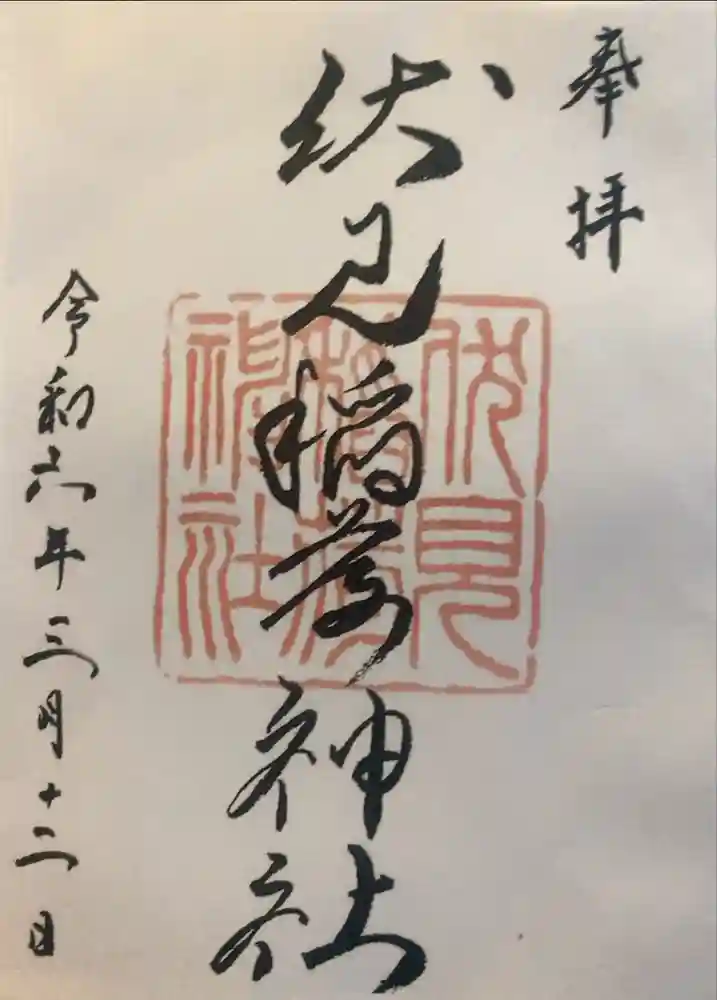 奉拝
伏見稲荷神社
伏見稲荷神社
令和六年三月十二日